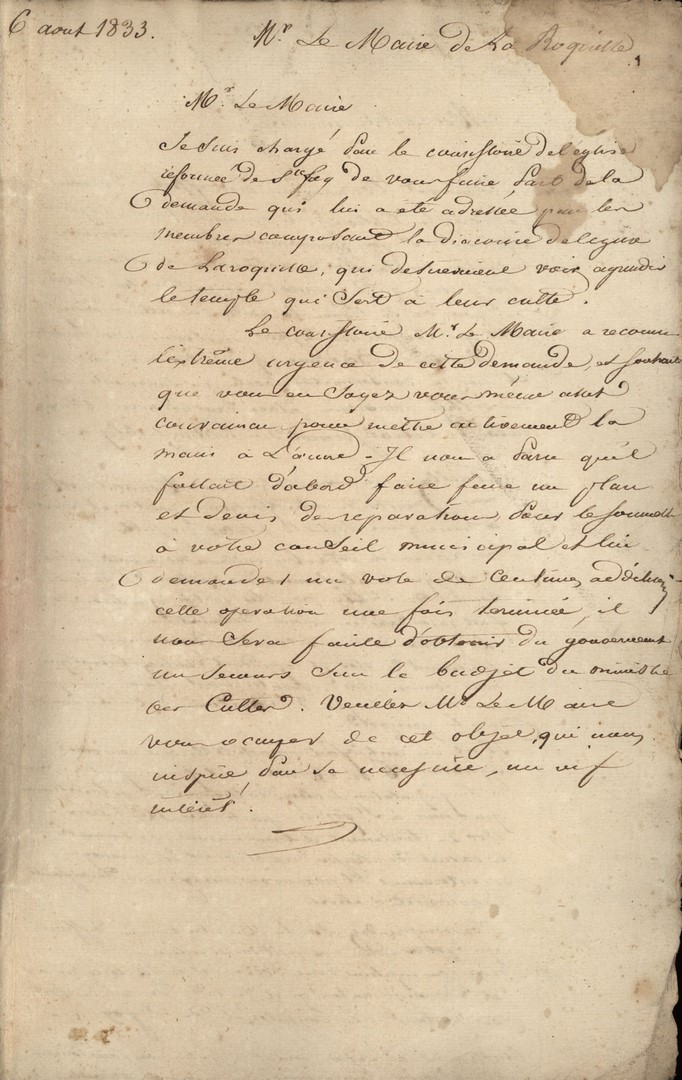 6 aout 1833.
Mr Le Maire de La Roquille
1
Mr Le Maire
Je suis chargé par le consistoire de l'eglise
reformée de Ste foy de vous faire part de la
demande qui lui a été adressée par les
membres composant la diaconie de l'eglise
de Laroquille, qui desireroient voir agrandir
le temple qui sert à leur culte.
Le consistoire Mr Le Maire a reconnu
l'extrême urgence de cette demande, et souhaite
que vous en soyez vous même assez
convaincu pour mettre activement la
main à L'œuvre - Il nous a paru qu'il
fallait d'abord faire faire un plan
et devis de reparations pour le soumettre
à votre conseil municipal et lui
demander un vote de Centimes additionels
cette operation une fois terminée, il
nous sera facile d'obtenir du gouvernement
un secours sur le budjet du ministre
des Cultes. Veuillez Mr Le Maire
vous occuper de cet objet, qui nous
inspire, par sa necessité, un vif
intérêt.